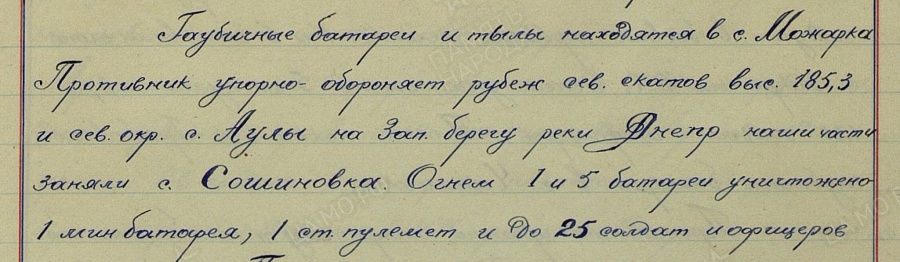 Гаубичные батареи и тылы находятся в с. Можарка
Противник упорно- обороняет рубеж сев. скатов выс. 185,3
и сев. окр. с. Аулы на Зап. берегу реки Днепр наши части
заняли с. Сошиновка. Огнем 1 и 5 батареи уничтожено
1 мин батарея, 1 ст. пулемет и до 25 солдат и офицеров